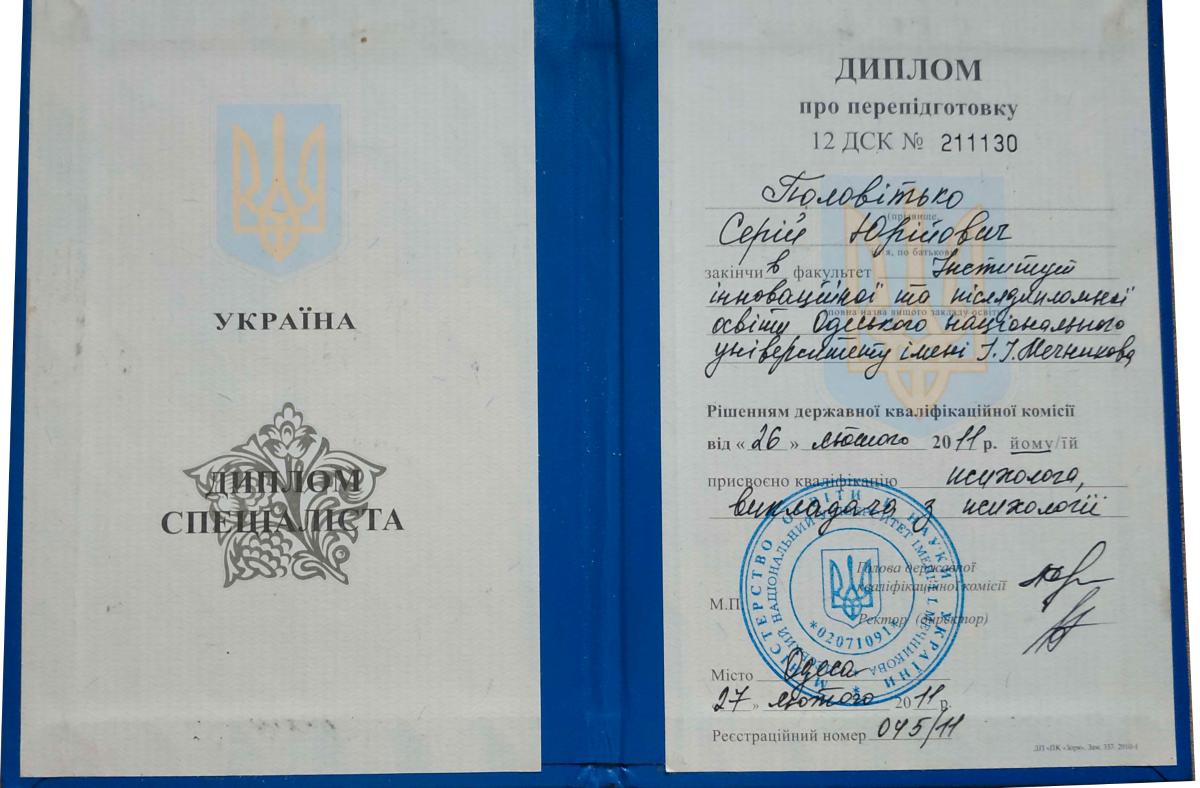 УКРАЇНА
ДИПЛОМ
СПЕЦІАЛІСТА
ДИПЛОМ
про перепідготовку
12 ДСК № 211130
Половітько
(прізвище,
Серій Юрійович
я, по батькові
закінчив факультет Інститут
інноваційної та післядипломної
повна назва вищого закладу освіти
освіти Одеського національного
університету імені І.І.Мечникова
Рішенням державної кваліфікаційної комісії
від « 26 » лютого 2011 р. йому/їй
присвоєно кваліфікацію психолога,
викладача з психології
Голова державної
кваліфікаційної комісії
М.П.
Ректор (директор)
МІНІСТЕРСТВО ОСВІТИ І НАУКИ УКРАЇНИ
НАЦІОНАЛЬНИЙ УНІВЕРСИТЕТ ІМЕНІ І.І. МЕЧНИКОВА
*02071091*
Місто Одеса
27 » лютого 2011 р.
Реєстраційний номер 045/11
ДП «ПК «Зоря». Зам. 357. 2010-І